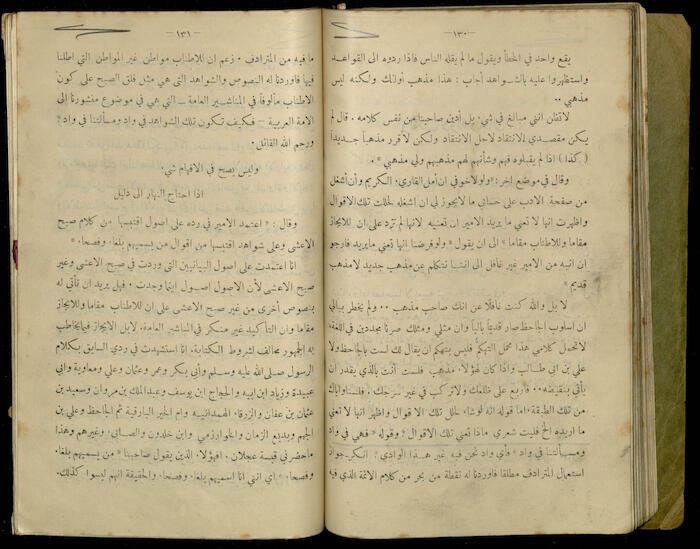 —١٣٠—
يقع واحد في الخطأ ويقول ما لم يقله الناس فاذا ردوه الى القواعد
واستظهروا عليه بالشواهد أجاب : هذا مذهب أولئك ولكنه ليس
مذهبي ..
لا تظن انني مبالغ في شيء بل أدين صاحبنا من نفس كلامه . قال لم
يكن مقصدي الانتقاد لاجل الانتقاد ولكن لأقرر مذهباً جديداً
( كذا ) اذا لم يقبلوه فهم وشأنهم لهم مذهبهم ولي مذهبي » .
وقال في موضع اخر : «ولولا خوفي ان أمل القارئ الكريم وأن أشغل
من صفحة الادب على حسابي ما لا يجوز لي ان اشغله لحللت تلك الاقوال
واظهرت انها لا تعني ما يريد الامير ان تعنيه لانها لم تزد على ان للايجاز
مقاما وللاطناب مقاما » الى ان يقول « ولو فرضنا انها تعني ما يريد فارجو
ان انبه من الامير غير غافل الى اننا نتكلم عن مذهب جديد لا مذهب
قديم »
لا بل والله كنت غافلا عن انك صاحب مذهب .. ولم يخطر ببالي
ان اسلوب الجاحظ صار قديماً بالياً وان مثلي ومثلك صرنا مجددين في اللغة،
لا تحمل كلامي هذا محمل التهكم فليس بتهكم ان يقال لك لست بالجاحظ ولا
علي بن ابي طالب واذا كان لهؤلاء مذهب فلست أنت بالذي يقدر ان
يأتي بنقيضه .. فاربع على ظلعك ولا تركب في غير سرجك . فلسنا واياك
من تلك الطبقة . اما قوله انه لو شاء لحلل تلك الاقوال واظهر انها لا تعني
ما اريده الخ فليت شعري ماذا تعني تلك الاقوال ? وقوله « فهي في واد
ومسألتنا في واد » فأي واد نحن فيه غير هذا الوادي ? انكر جواز
استعمال المترادف مطلقا فاوردنا له نقطة من بحر من كلام الائمة الذي فيه
—١٣١—
ما فيه من المترادف . زعم ان للاطناب مواطن غير المواطن التي اطلنا
فيها فاوردنا له النصوص والشواهد التي هي مثل فلق الصبح على كون
الاطناب مألوفاً في المناشير العامة — التي هي في موضوع منشورنا الى
الامة العربية — فكيف تكون تلك الشواهد في واد ومسألتنا في واد ?
ورحم الله القائل .
وليس يصح في الافهام شيء
اذا احتاج النهار الى دليل
وقال : « اعتمد الامير في رده على اصول اقتبسها من كلام صبح
الاعشى وعلى شواهد اقتبسها من اقوال من يسميهم بلغاء وفصحاء »
انا اعتمدت على اصول البيانيين التي وردت في صبح الاعشى وغير
صبح الاعشى لأن الاصول اصول اينما وجدت . فهل يريد ان نأتي له
بنصوص أخرى من غير صبح الاعشى على ان للاطناب مقاما وللايجاز
مقاما وان التأكيد غير منكر في المناشير العامة. لا بل الايجاز فيما يخاطب
به الجمهور مخالف لشروط الكتابة. انا استشهدت في ردي السابق بكلام
الرسول صلى الله عليه وسلم وأبي بكر وعمر وعثمان وعلي ومعاوية وابي
عبيدة وزياد ابن ابيه والحجاج ابن يوسف وعبد الملك بن مروان وسعيد بن
عثمان بن عفان والزرقاء الهمدانية وام الخير البارقية ثم الجاحظ وعلي بن
الجهم وبديع الزمان والخوارزمي وابن خلدون والصابي. وغيرهم وهذا
ما حضرني قبسة عجلان . افهؤلاء الذين يقول صاحبنا « من يسميهم بلغاء
وفصحاء » اي انني انا اسميهم بلغاء وفصحاء والحقيقة انهم ليسوا كذلك.